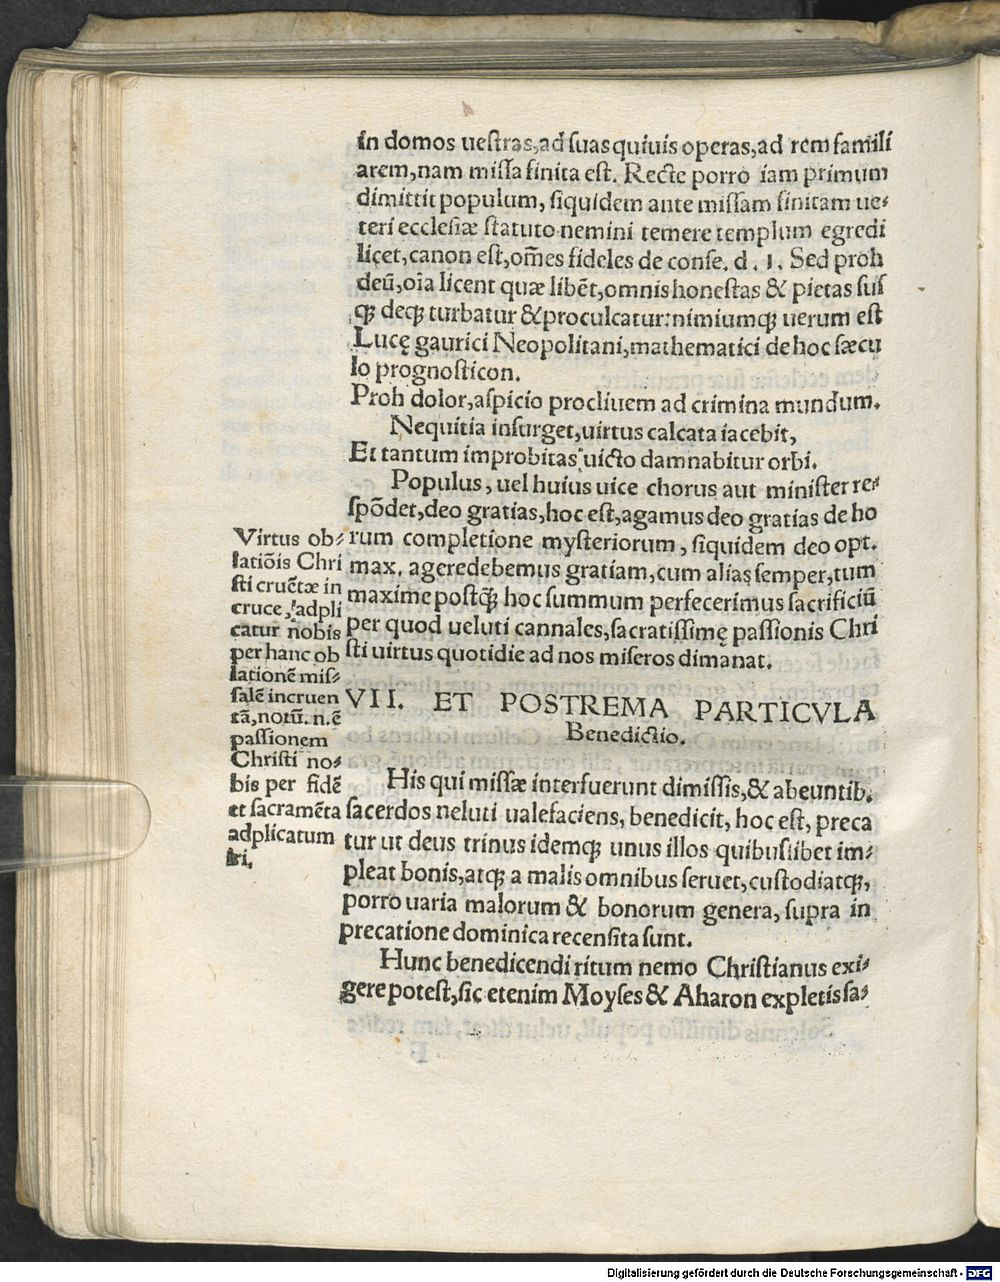 in domos uestras,ad suas quiuis operas,ad rem famili
arem,nam missa finita est. Recte porro iam primum
dimittit populum, siquidem ante missam finitam ue-
teri ecclesiæ statuto nemini temere templum egredi
licet,canon est,om̃es fideles de conse. d. 1. Sed proh
deū,oīa licent quæ libēt,omnis honestas & pietas sus
qꝫ deqꝫ turbatur & proculcatur:nimiumqꝫ uerum est
Lucę gaurici Neopolitani,mathematici de hoc sæcu
lo prognosticon.
Proh dolor,aspicio procliuem ad crimina mundum.
Nequitia insurget,uirtus calcata iacebit,
Et tantum improbitas uicto damnabitur orbi.
Populus, uel huius uice chorus aut minister re-
spōdet,deo gratias,hoc est,agamus deo gratias de ho
rum completione mysteriorum, siquidem deo opt.
max. agere debemus gratiam,cum alias semper,tum
maxime postqꝫ̃ hoc summum perfecerimus sacrificiū
per quod ueluti cannales,sacratissimę passionis Chri
sti uirtus quotidie ad nos miseros dimanat.
Virtus ob-
latiōis Chri
sti cruētæ in
cruce, adpli
catur nobis
per hanc ob
lationē mis-
salē incruen
tā,notū. n.ē
passionem
Christi no-
bis per fidē
et sacramēta
adplicatum
iri.
VII. ET POSTREMA PARTICVLA
Benedictio.
His qui missæ interfuerunt dimissis,& abeuntib.
sacerdos neluti ualefaciens, benedicit, hoc est, preca
tur ut deus trinus idemqꝫ unus illos quibuslibet im-
pleat bonis,atqꝫ a malis omnibus seruet,custodiatqꝫ,
porro uaria malorum & bonorum genera, supra in
precatione dominica recensita sunt.
Hunc benedicendi ritum nemo Christianus exi-
gere potest,sic etenim Moyses & Aharon expletis sa-
Digitalisierung gefördert durch die Deutsche Forschungsgemeinschaft - DFG